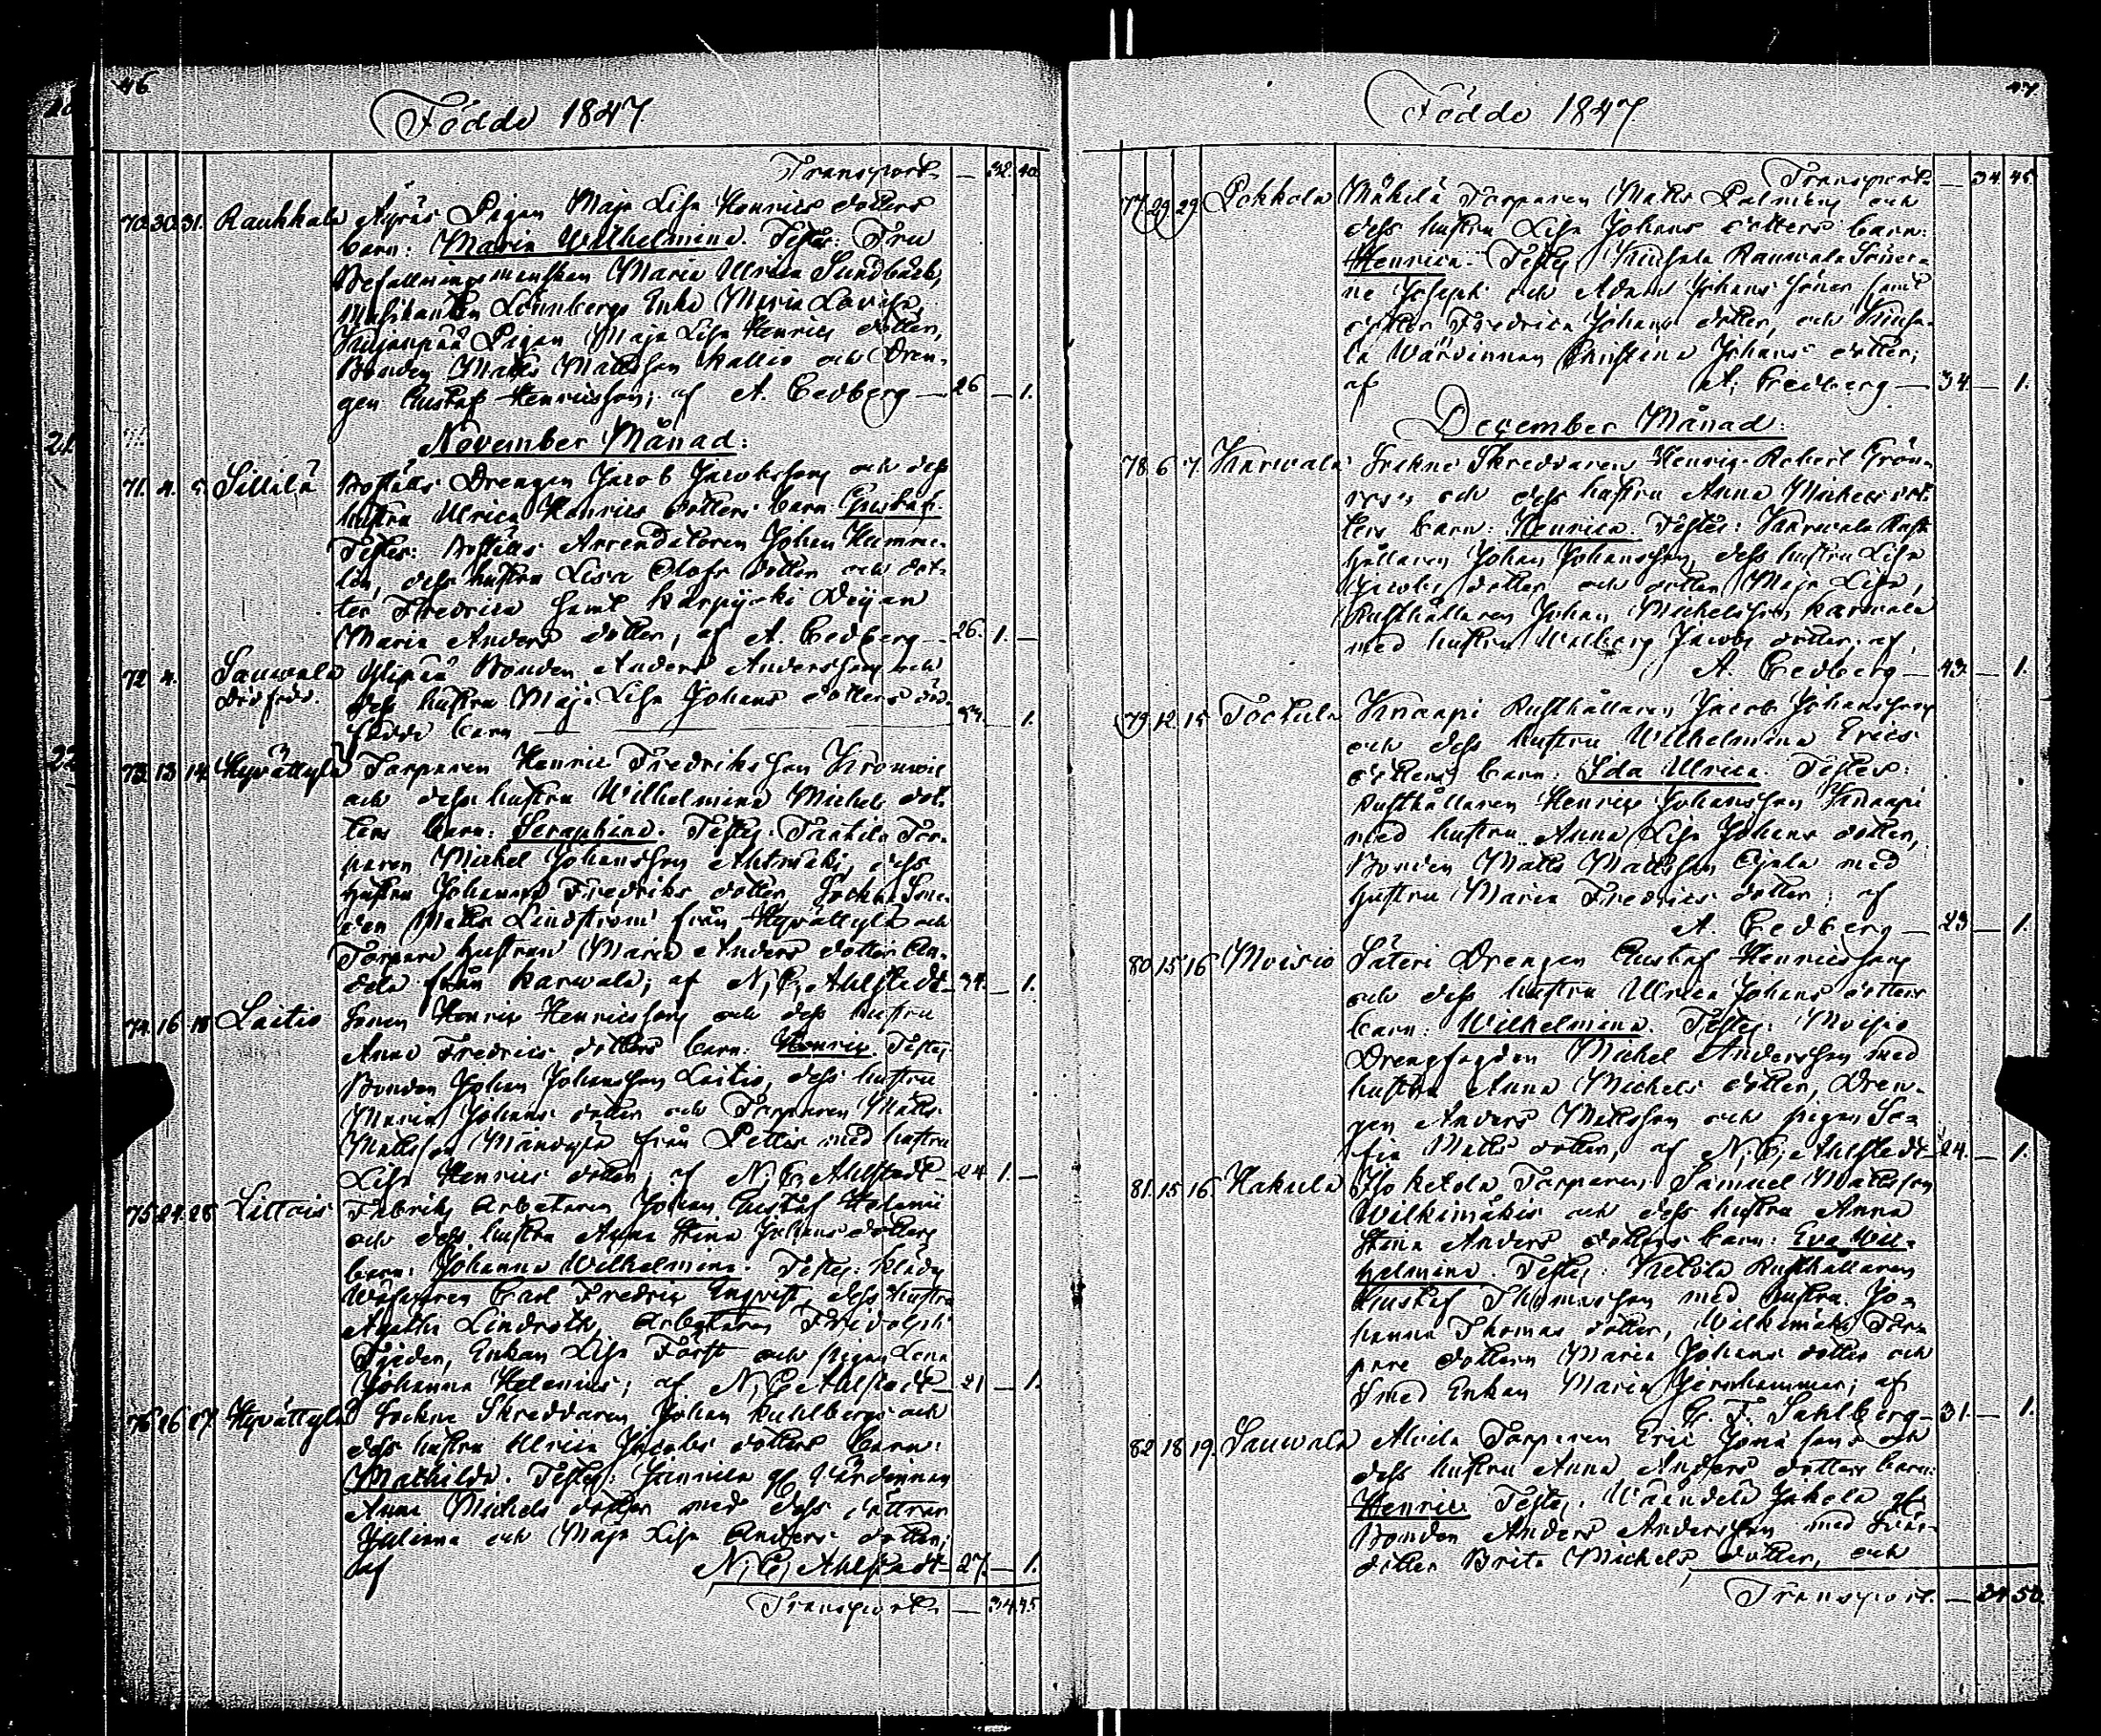 46.
Födde 1847
Transport — 32. 40.
70. 30. 31. Raukkala Äyräs Pigan Maja Lisa Henrics dotters
barn: Maria Wilhelmina. Testes: Fru
Befallningsmanskan Maria Ulrica Sundbäck,
Musikanten Lönnbergs Enka Maria Lovisa,
Pigan Maja Lisa Henrics dotter,
Bonden Matts Mattsson Kallio och Dren-
gen Gustaf Henricsson; af A. Cedberg — 26 — 1.
November Månad:
71. 4. 5. Sillilä Boställs Drengen Jacob Jacobsson och dess
hustru Ulrica Henrics dotters barn Gustaf.
Testes: Boställs Arrendatoren Johan Humme-
lin, dess hustru Lisa Olofs dotter och dot-
ter Fredrica samt Karpijoki Deijan
Maria Anders dotter, af A. Cedberg — 26. 1. —
72 4. Sauwala Bonden Anders Andersson och
Död född. dess hustru Maja Lisa Johans dotters död-
födde barn — 1.
73. 13 14. Hyvättylä Torparen Henric Fredriksson
och dess hustru Wilhelmina Michels dot-
ters barn: Seraphina. Testes: Tor-
paren Michel Johansson dess
hustru Johanna Fredriks dotter, Sockne Sme-
den Matts Lindström från Hyvättylä och
Torpare hustrun Maria Anders dotter
från Karwala; af N. C. Ahlstedt — 34. — 1.
74. 16 18 Laitis Sonen Henric Henricsson och dess hustru
Anna Fredrics dotters barn: Henric. Testes:
Bonden Johan Johansson Laitis, dess hustru
Maria Johans dotter och Torparen Matts
Mattsson från Pettis med hustru
Lisa Henrics dotter; af N. C. Ahlstedt — 24 1. —
75. 24. 28. Littois Fabriks Arbetaren Johan Gustaf Helenii
och dess hustru Anna Stina Johans dotters
barn: Johanna Wilhelmina. Testes: Klädes
Wäfvaren Carl Fredric Enqvist, dess hustru
Agatha Lindroth, Arbetaren Fridolph
Enkan Lisa Först och pigan Lena
Johanna Helenius; af N. C. Ahlstedt — 21 — 1.
76. 26 27. Hyvättylä Sockne Skreddaren Johan Kuhlbergs och
dess hustru Ulrica Jacobs dotters barn:
Mathilda. Testes: Värdinnan
Anna Michels dotter med dess döttrar
Juliana och Maja Lisa Anders dotter;
af N. C. Ahlstedt — 27. — 1.
Transport — 34. 45.
47.
Födde 1847
Transport — 34. 45.
77. 29. 29. Pokkola Mäkilä Torparen Matts Palmens och
dess hustru Lisa Johans dotters barn:
Henrica. Testes: Rauwala Söner-
ne Joseph och Adam Johans söner samt
dotter Fredrica Johans dotter, och
la Wärdinnan Christina Johans dotter;
af A. Cedberg — 34. — 1.
December Månad:
78. 6 7. Karwala Sockne Skreddaren Henric Robert Grön-
och dess hustru Anna Michels dot-
ters barn: Henrica. Testes: Karwala Rust-
hållaren Johan Johansson, dess hustru Lisa
Jacobs dotter och dotter Maja Lisa,
Rusthållaren Johan Michelsson Karwala
med hustru Walborg Jacobs dotter; af
A. Cedberg — 43. — 1.
79. 12. 15. Tootula Knaapi Rusthållaren Jacob Johansson
och dess hustru Wilhelmina Erics
dotters barn: Ida Ulrica. Testes:
Rusthållaren Henric Johansson Knaapi
med hustru Anna Lisa Johans dotter,
Bonden Matts Mattsson Ojala med
hustru Maria Fredrics dotter; af
A. Cedberg — 23 — 1.
80. 15 16 Moisio Säteri Drengen Gustaf Henricsson
och dess hustru Ulrica Johans dotters
barn: Wilhelmina. Testes: Moisio
Drengfogden Michel Andersson med
hustru Anna Michels dotter, Dren-
gen Anders Mattsson och pigan So-
fia Matts dotter, af N. C. Ahlstedt — 24. — 1.
81. 15 16. Hakula Torparen Samuel Mattsson
Wilkimäkis och dess hustru Anna
Stina Anders dotters barn: Eva Wil-
helmina. Testes: Ketola Rusthållaren
Gustaf Thomasson med hustru Jo-
hanna Thomas dotter, Wilkimäki Tor-
pare dottern Maria Johans dotter och
Smed Enkan Maria Jernhammar; af
G. F. Sahlberg — 31. — 1.
82 18 19. Sauwala Torparen Eric Jonassons och
dess hustru Anna Anders dotters barn:
Henric. Testes:
Bonden Anders Andersson med Svär-
dotter Brita Michels dotter, och
Transport. — 34 50.